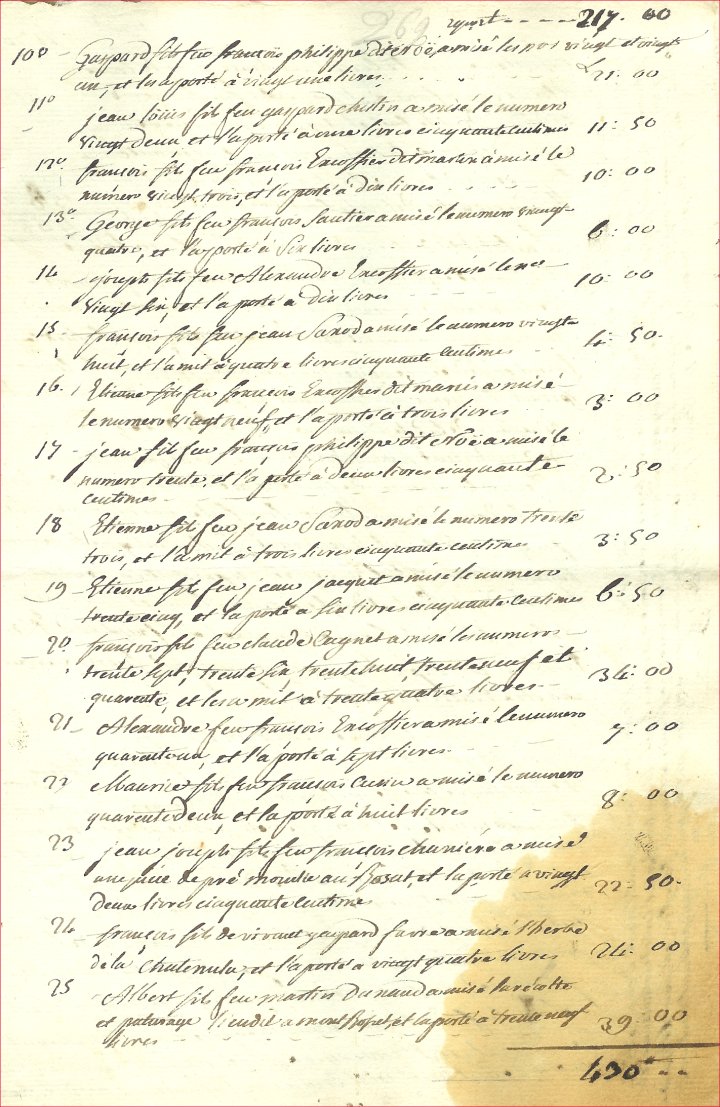 269
report - - - - 217. 00
10° - Gaspard fils feu françois philippe dit croë, a misé les nos vingt et vingt
un, et les a porté à vingt une livres. . . . 21: 00
11° jean loüis fils feu gaspard a misé le numero
vingt deux et l'a porté à onze livres cinquante centimes 11: 50
12° françois fils feu françois Encossier dit martin à misé le
numéro vingt trois, et l'a porté à dix livres 10: 00
13° George fils feu françois Sautier a misé le numero vingt
quatre, et l'a porté à six livres 6: 00
14 - joseph fils feu Alexandre Encossier a misé le no
vingt six et l'a porté a dix livres 10: 00
15 - françois fils feu jean Sanod a misé le numero vingt
huit, et l'a mis à quatre livres cinquante centimes 4: 50.
16. Etienne fils feu françois Encossier dit a misé
le numero vingt neuf, et l'a porté à trois livres 3: 00
17 - jean fils feu françois philippe dit croë a misé le
numero trente, et l'a porté à deux livres cinquante 2: 50
centimes
18 Etienne fils feu jean Sanod a misé le numero trente
trois, et l'a mis à trois livres cinquante centimes 3: 50
19 - Etienne fils feu jean jacquet a misé le numero
trente cinq, et l'a porté à six livres cinquante centimes 6: 50
20 françois fils feu claude Cagnet a misé les numeros
trente sept, trente six, trente huit, trente neuf et
quarente, et les a mis à trente quatre livres 34: 00
21 - Alexandre feu françois Encossier a misé le numero
quarente un, et l'a porté à sept livres 7: 00
22 Maurice fils feu françois a misé le numero
quarente deux, et l'a porté à huit livres 8: 00
23 jean joseph fils feu françois a misé
une pièce de pré au et l'a porté à vingt 22: 50.
deux livres cinquante centimes
24 - françois fils de vivant gaspard favre a misé l'herbe
de la et l'a porté a vingt quatre livres 24: 00
25 Albert fils feu martin Dunand a misé la récolte
et paturage lieu dit a mont et l'a porté à trente neuf 39: 00
livres
430 - -